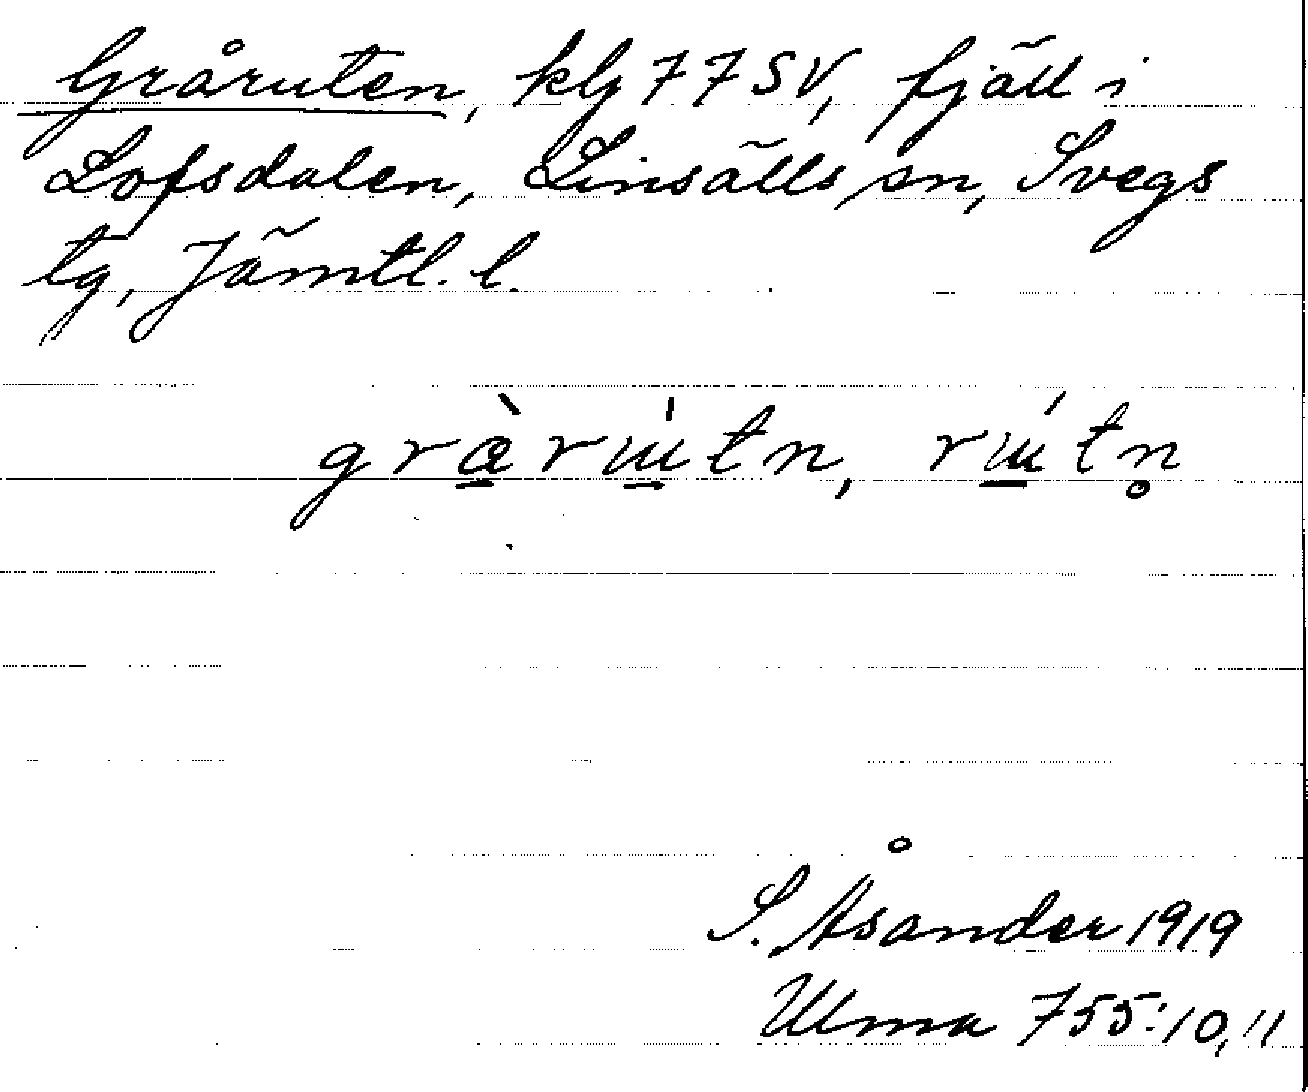 Gråruten, klg 77 SV, fjäll i
Lofsdalen, Linsälls sn, Svegs
tg, Jämtl. l.
S. Åsander 1919
Ulma 755:10,11